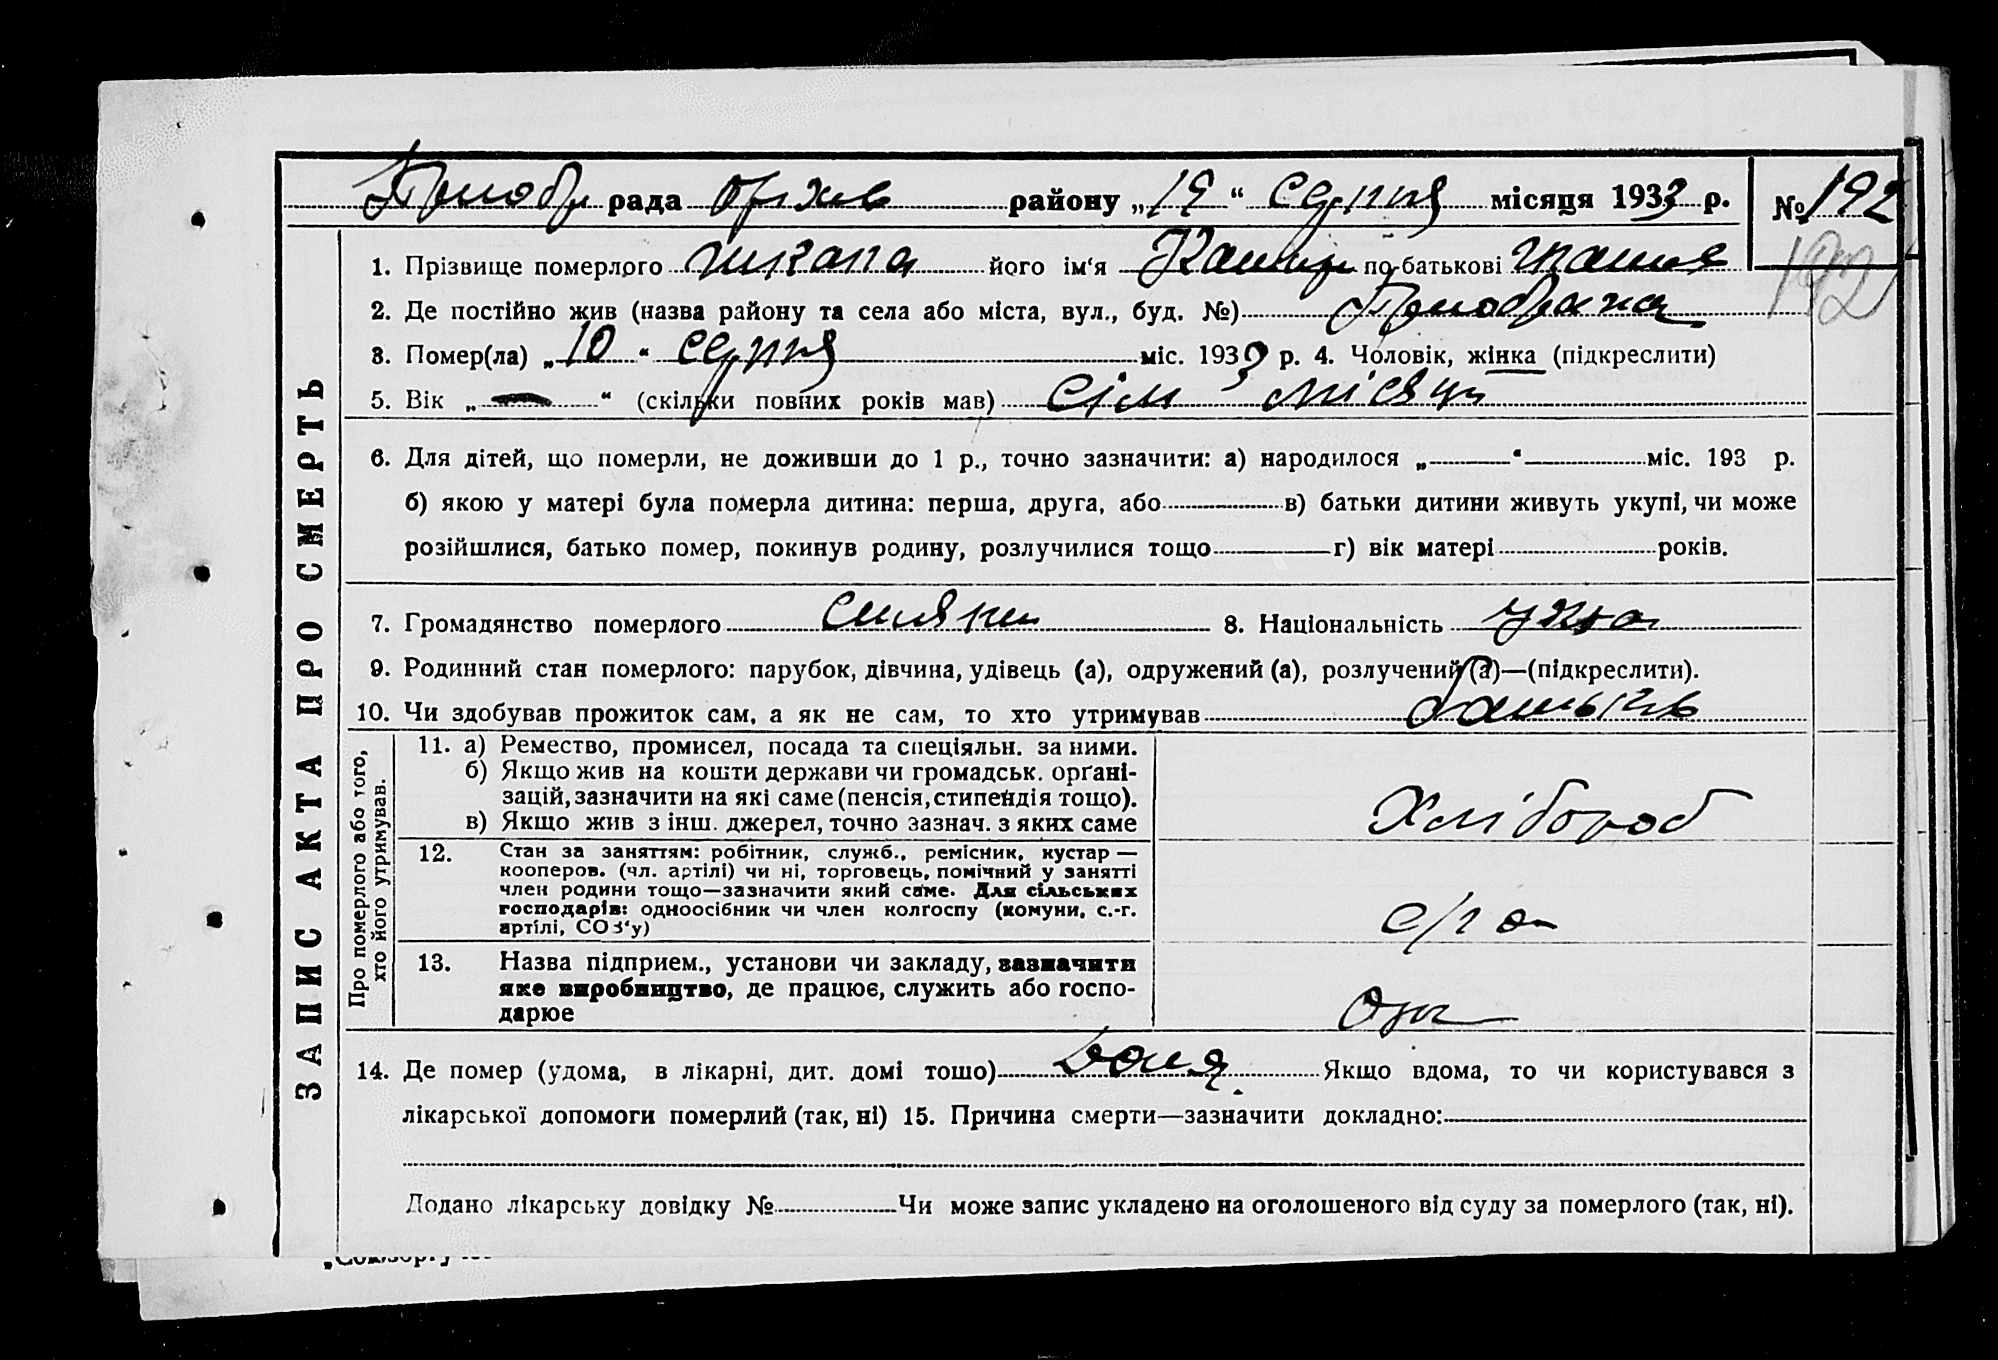 рада район „19“ серпня місяця 1933 р. № 192
192
ЗАПИС АКТА ПРО СМЕРТЬ
1. Прізвище померлого його ім‘я по-батькові
2. Де постійно жив (назва району та села або міста, вул., буд. №)
3. Помер(ла) „10“ серпня міс. 1933 р. 4. Чоловік, жінка (підкреслити)
5. Вік „ “ (скільки повних років мав) сім місяц
6. Для дітей, що померли, не доживши до 1 р., точно зазначити: а) народилося „ “ міс. 193 р.
б) якою у матері була померла дитина: перша, друга, або в) батьки дитини живуть укупі, чи може
розійшлися, батько помер, покинув родину, розлучилися тощо г) вік матері років.
7. Громадянство померлого 8. Національність укр
9. Родинний стан померлого: парубок, дівчина, удівець (а), одружений (а), розлучений (а)—(підкреслити).
10. Чи здобував прожиток сам, а як не сам, то хто утримував батьків
Про померлого або того,
хто його утримував.
11. а) Ремество, промисел, посада та спеціяльн. за ними.
б) Якщо жив на кошти держави чи громадськ. орґані-
зацій, зазначити на які саме (пенсія, стипендія тощо).
в) Якщо жив з інш. джерел, точно зазнач. з яких саме
Хлібороб
12. Стан за заняттям: робітник, служб., ремісник, кустар —
кооперов. (чл. артілі) чи ні, торговець, помічний у занятті
член родини тощо—зазначити який саме. Для сільських
господарів: одноосібник чи член колгоспу (комуни, с.-г.
артілі, СОЗ‘у)
13. Назва підприєм., установи чи закладу, зазначити
яке виробництво, де працює, служить або госпо-
дарює
14. Де помер (удома, в лікарні, дит. домі тощо) Якщо вдома, то чи користувався з
лікарської допомоги померлий (так, ні) 15. Причина смерти—зазначити докладно:
Додано лікарську довідку № Чи може запис укладено на оголошеного від суду за померлого (так, ні).